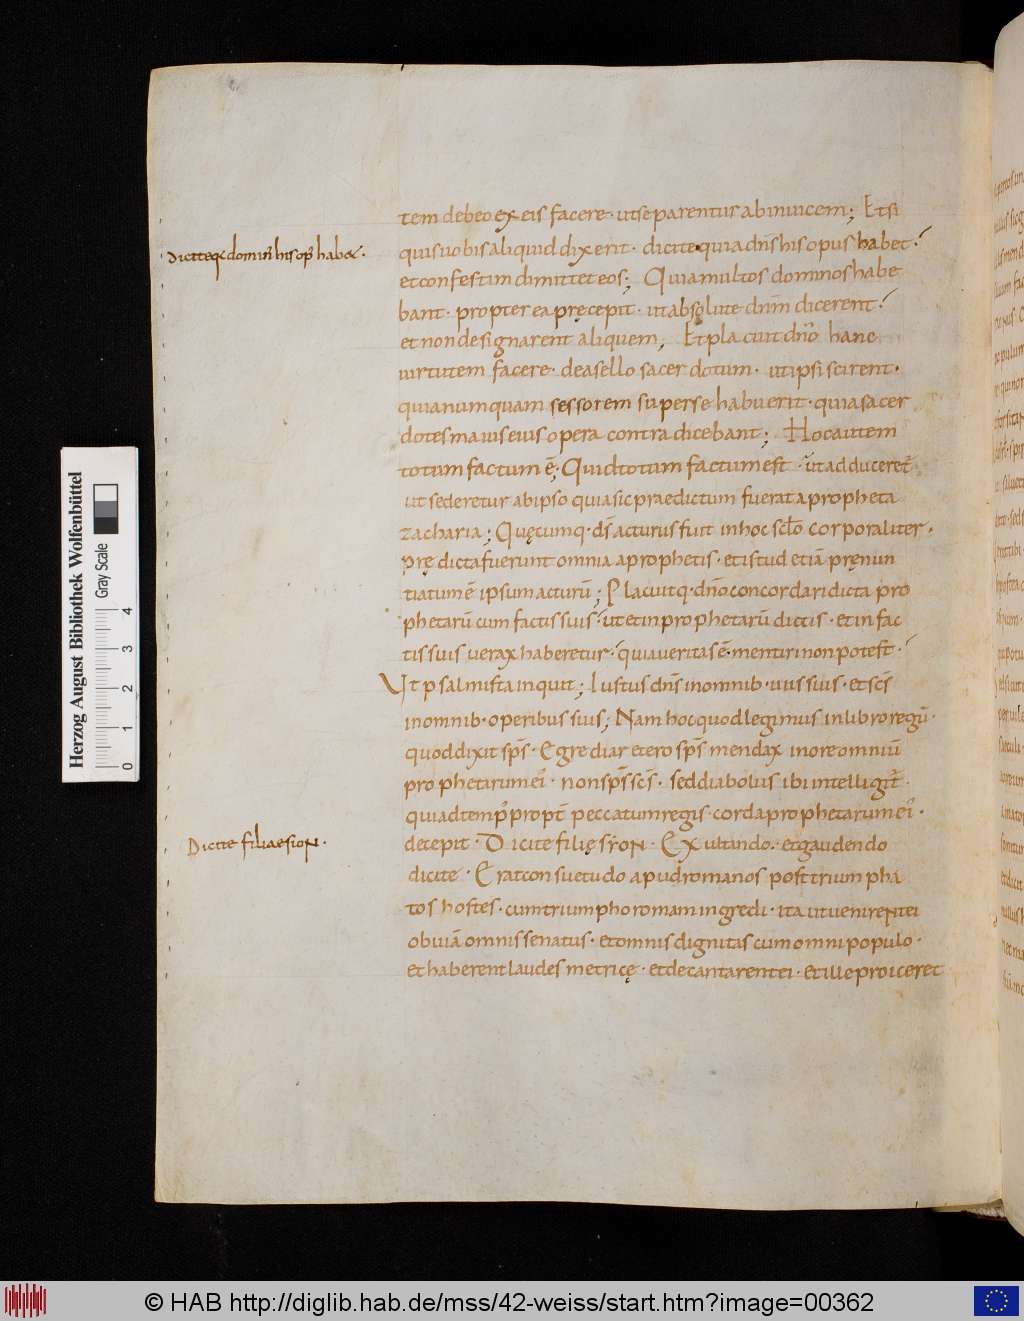 tem debeo ex eis facere · ut separentur ab inuicem ; Et si
Dicite q domin his op habet .
quis uobis aliquid dixerit · dicite quia dn̄s his opus habet ·
et confestim dimittet eos ; Quia multos dominos habe
bant · propter ea pręcepit · ut absolute dn̄m dicerent ·
et non designarent aliquem ; Et placuit dn̄o hanc
uirtutem facere · de asello sacerdotum · ut ipsi scirent ·
quia numquam sessorem super se habuerit · quia sacer
dotes magis eius opera contradicebant ; Hoc autem
totum factum ē ; Quid totum factum est · ut adduceret
ut sederetur ab ipso quia sic praedictum fuerat a propheta
zacharia ; Quęcumq · dn̄s acturus fuit in hoc sc̄lo corporaliter ·
prędicta fuerunt omnia a prophetis · et istud etiā pręnun
tiatum ē ipsum acturū ; Placuit q · dn̄o concordari dicta pro
phetarū cum factis suis · ut et in prophetarū dictis · et in fac
tis suis uerax haberetur · quia ueritas ē · mentiri non potest ·
Ut psalmista inquit ; Iustus dn̄s in omnib · uiis suis · et sc̄s
in omnib · operibus suis ; Nam hoc quod legimus in libro regū ·
quod dixit sp̄s · Egrediar et ero sp̄s mendax in ore omniū
prophetarum ei · non sp̄s sc̄s · sed diabolus ibi intelligit̄ ·
qui ad temp propt peccatum regis · corda prophetarum ei ·
Dicite filiae sion .
decepit · Dicite filię sion · Exultando · et gaudendo
dicite · Erat consuetudo apud romanos post trium pha
tos hostes · cum triumpho romam ingredi · ita ut uenirent ei
obuiā omnis senatus · et omnis dignitas cum omni populo ·
et haberent laudes metricę · et decantarent ei · et ille proiceret
Herzog August Bibliothek Wolfenbüttel
Gray Scale
0 1 2 3 4
© HAB http://diglib.hab.de/mss/42-weiss/start.htm?image=00362